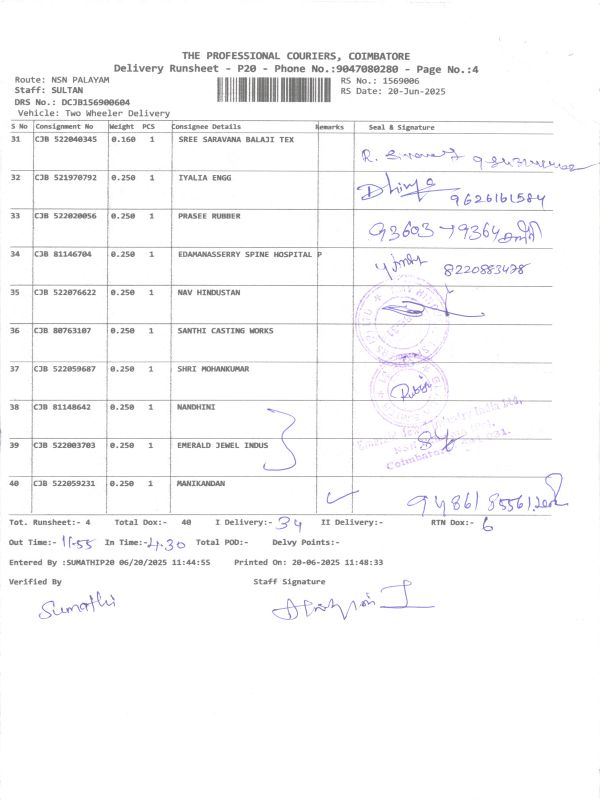 THE PROFESSIONAL COURIERS, COIMBATORE
Delivery Runsheet - P20 - Phone No.:9047080280 - Page No.:4
Route: NSN PALAYAM RS No.: 1569006
Staff: SULTAN RS Date: 20-Jun-2025
DRS No.: DCJB156900604
Vehicle: Two Wheeler Delivery
S No Consignment No Weight PCS Consignee Details Remarks Seal & Signature
31 CJB 522040345 0.160 1 SREE SARAVANA BALAJI TEX
32 CJB 521970792 0.250 1 IYALIA ENGG
9626161584
33 CJB 522020056 0.250 1 PRASEE RUBBER
93603 79364
34 CJB 81146704 0.250 1 EDAMANASSERRY SPINE HOSPITAL P
8220883478
35 CJB 522076622 0.250 1 NAV HINDUSTAN
36 CJB 80763107 0.250 1 SANTHI CASTING WORKS
37 CJB 522059687 0.250 1 SHRI MOHANKUMAR
38 CJB 81148642 0.250 1 NANDHINI
39 CJB 522003703 0.250 1 EMERALD JEWEL INDUS
40 CJB 522059231 0.250 1 MANIKANDAN
Tot. Runsheet:- 4 Total Dox:- 40 I Delivery:- 34 II Delivery:- RTN Dox:- 6
Out Time:- 11.55 In Time:- 4.30 Total POD:- Delvy Points:-
Entered By :SUMATHIP20 06/20/2025 11:44:55 Printed On: 20-06-2025 11:48:33
Verified By Staff Signature
Sumathi